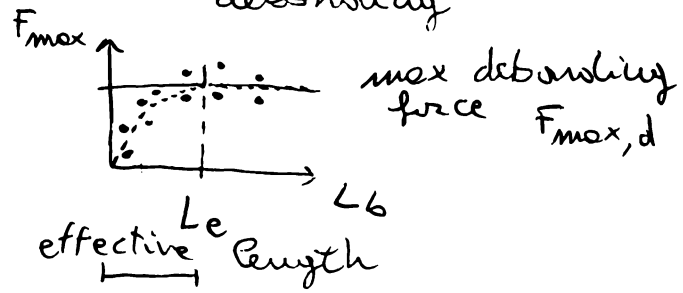 debonding
Fmax
max debonding
force Fmax,d
Lb
Le
effective length